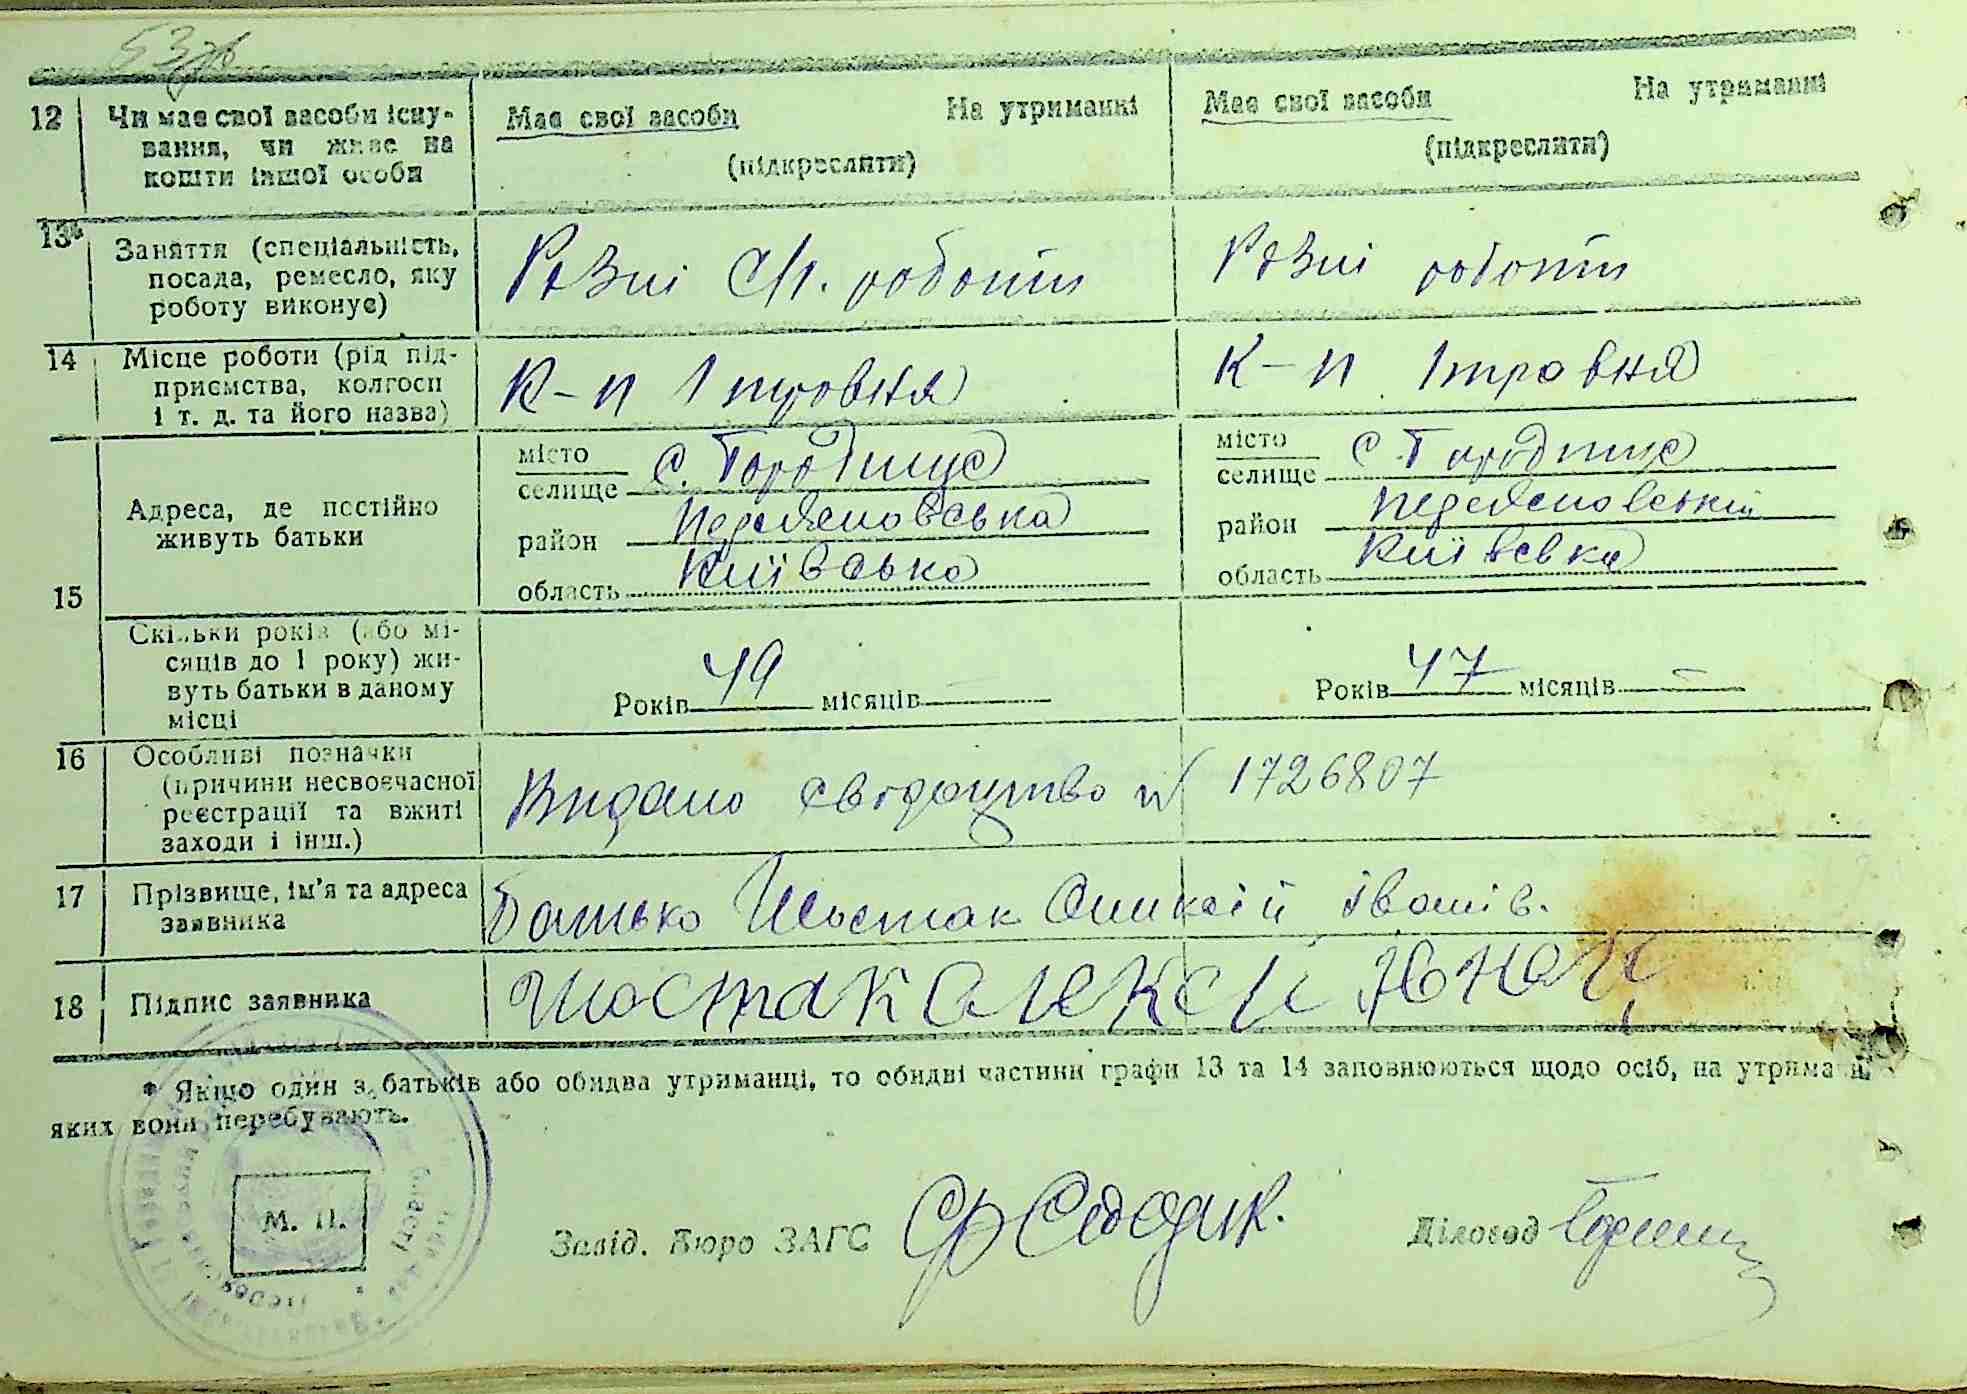 53зв
12 Чи має свої засоби існу- Має свої засоби На утриманні Має свої засоби На утриманні
вання, чи живе на (підкреслити) (підкреслити)
кошти іншої особи
13* Заняття (спеціальність, Різні с/г. роботи Різні роботи
посада, ремесло, яку
роботу виконує)
14 Місце роботи (рід під- К-п 1 травня К-п 1 травня
приємства, колгосп
і т. д. та його назва)
15 Адреса, де постійно місто місто
живуть батьки селище с. Городище селище с. Городище
район район
область Київська область Київська
Скільки років (або мі-
сяців до 1 року) жи-
вуть батьки в даному Років 49 місяців — Років 47 місяців —
місці
16 Особливі позначки
(причини несвоєчасної Видано свідоцтво № 1726807
реєстрації та вжиті
заходи і інш.)
17 Прізвище, ім'я та адреса Батько Шостак Оликсій Іванів.
заявника
18 Підпис заявника Шостак Олексій
* Якщо один з батьків або обидва утриманці, то обидві частини графи 13 та 14 заповнюються щодо осіб, на утриманні
яких вони перебувають.
М. П.
Завід. Бюро ЗАГС Діловод